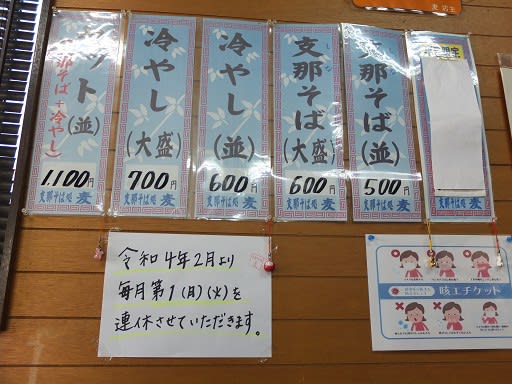 支那そば(並)
500円
支那そば処 麦
支那そば(大盛)
600円
支那そば処 麦
冷やし(並)
600円
支那そば処 麦
冷やし(大盛)
700円
支那そば処 麦
セット(並)
(支那そば+冷やし)
1,100円
支那そば処 麦
支那そば処 麦
令和4年2月より
毎月第1(月)(火)を
連休させていただきます。
咳エチケット